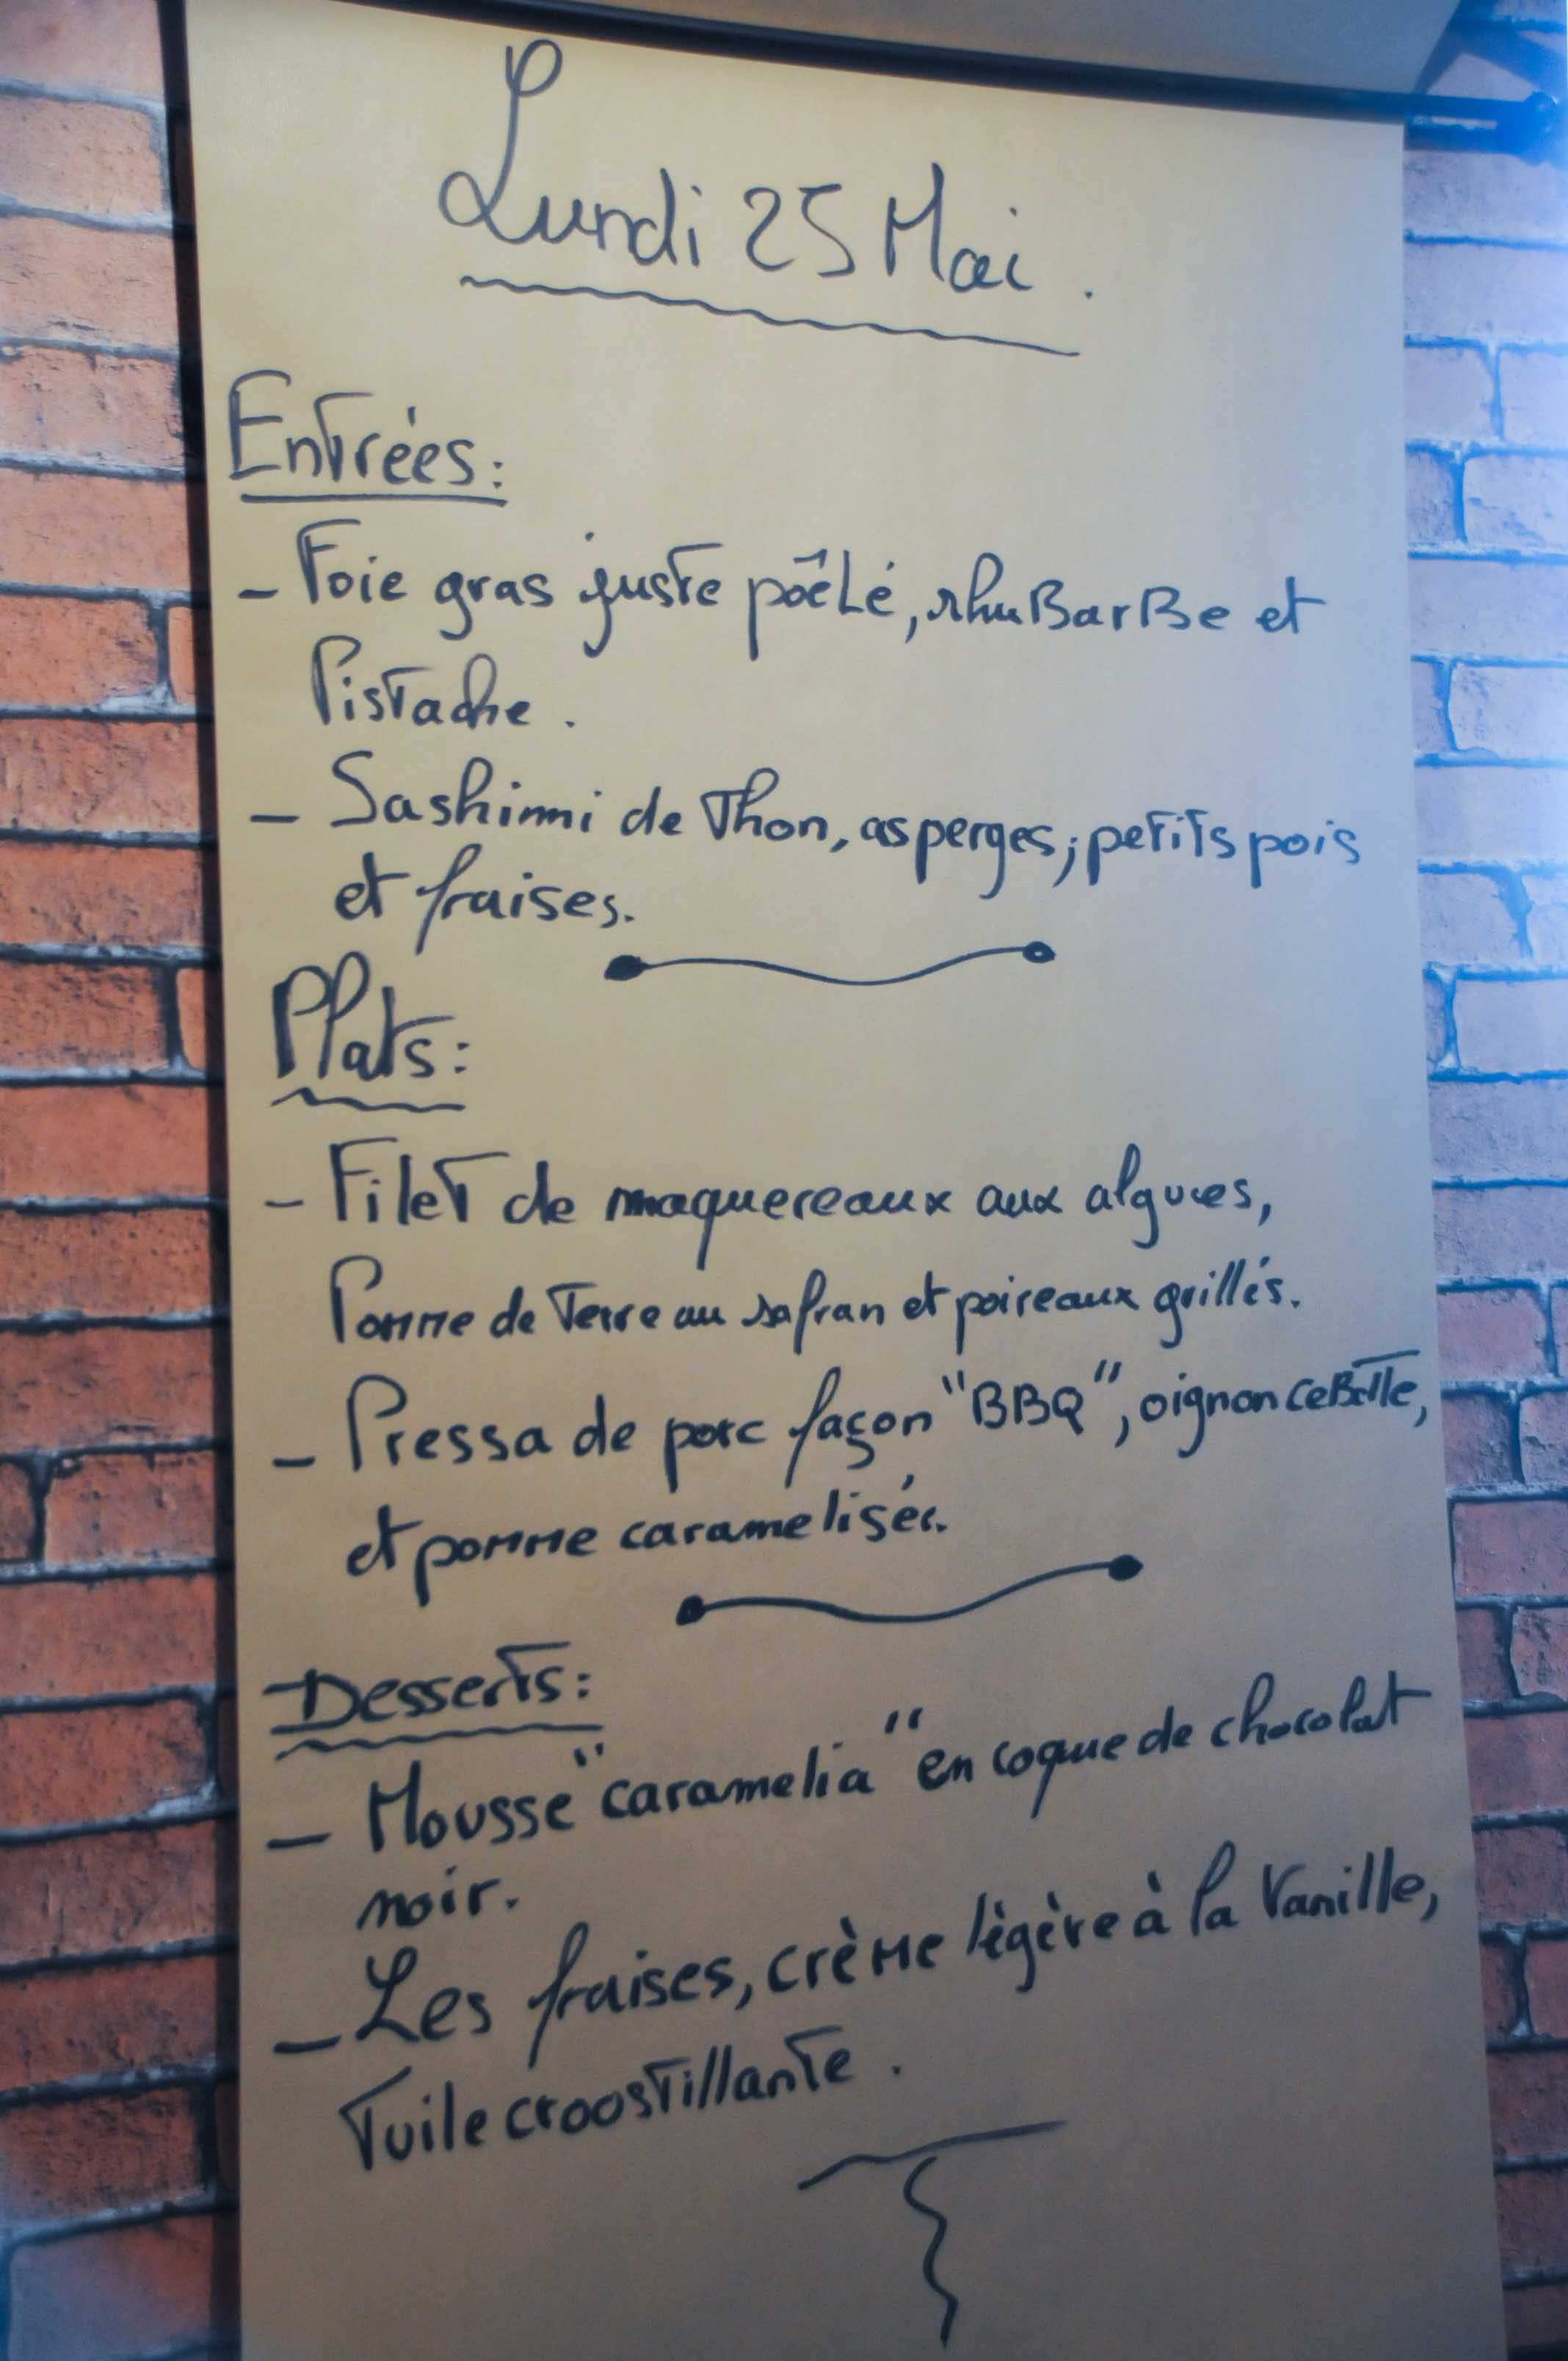 Lundi 25 Mai.
Entrées:
- Foie gras juste pôêlé, rhubarbe et
Pistache.
- Sashimi de Thon, asperges, petits pois
et fraises.
Plats:
- Filet de maquereaux aux algues,
Pomme de Terre au safran et poireaux grillés.
- Pressa de porc façon "BBQ", oignon cebette,
et pomme caramelisée.
Desserts:
- Mousse "caramelia" en coque de chocolat
noir.
- Les fraises, crème légère à la Vanille,
Tuile croostillante.